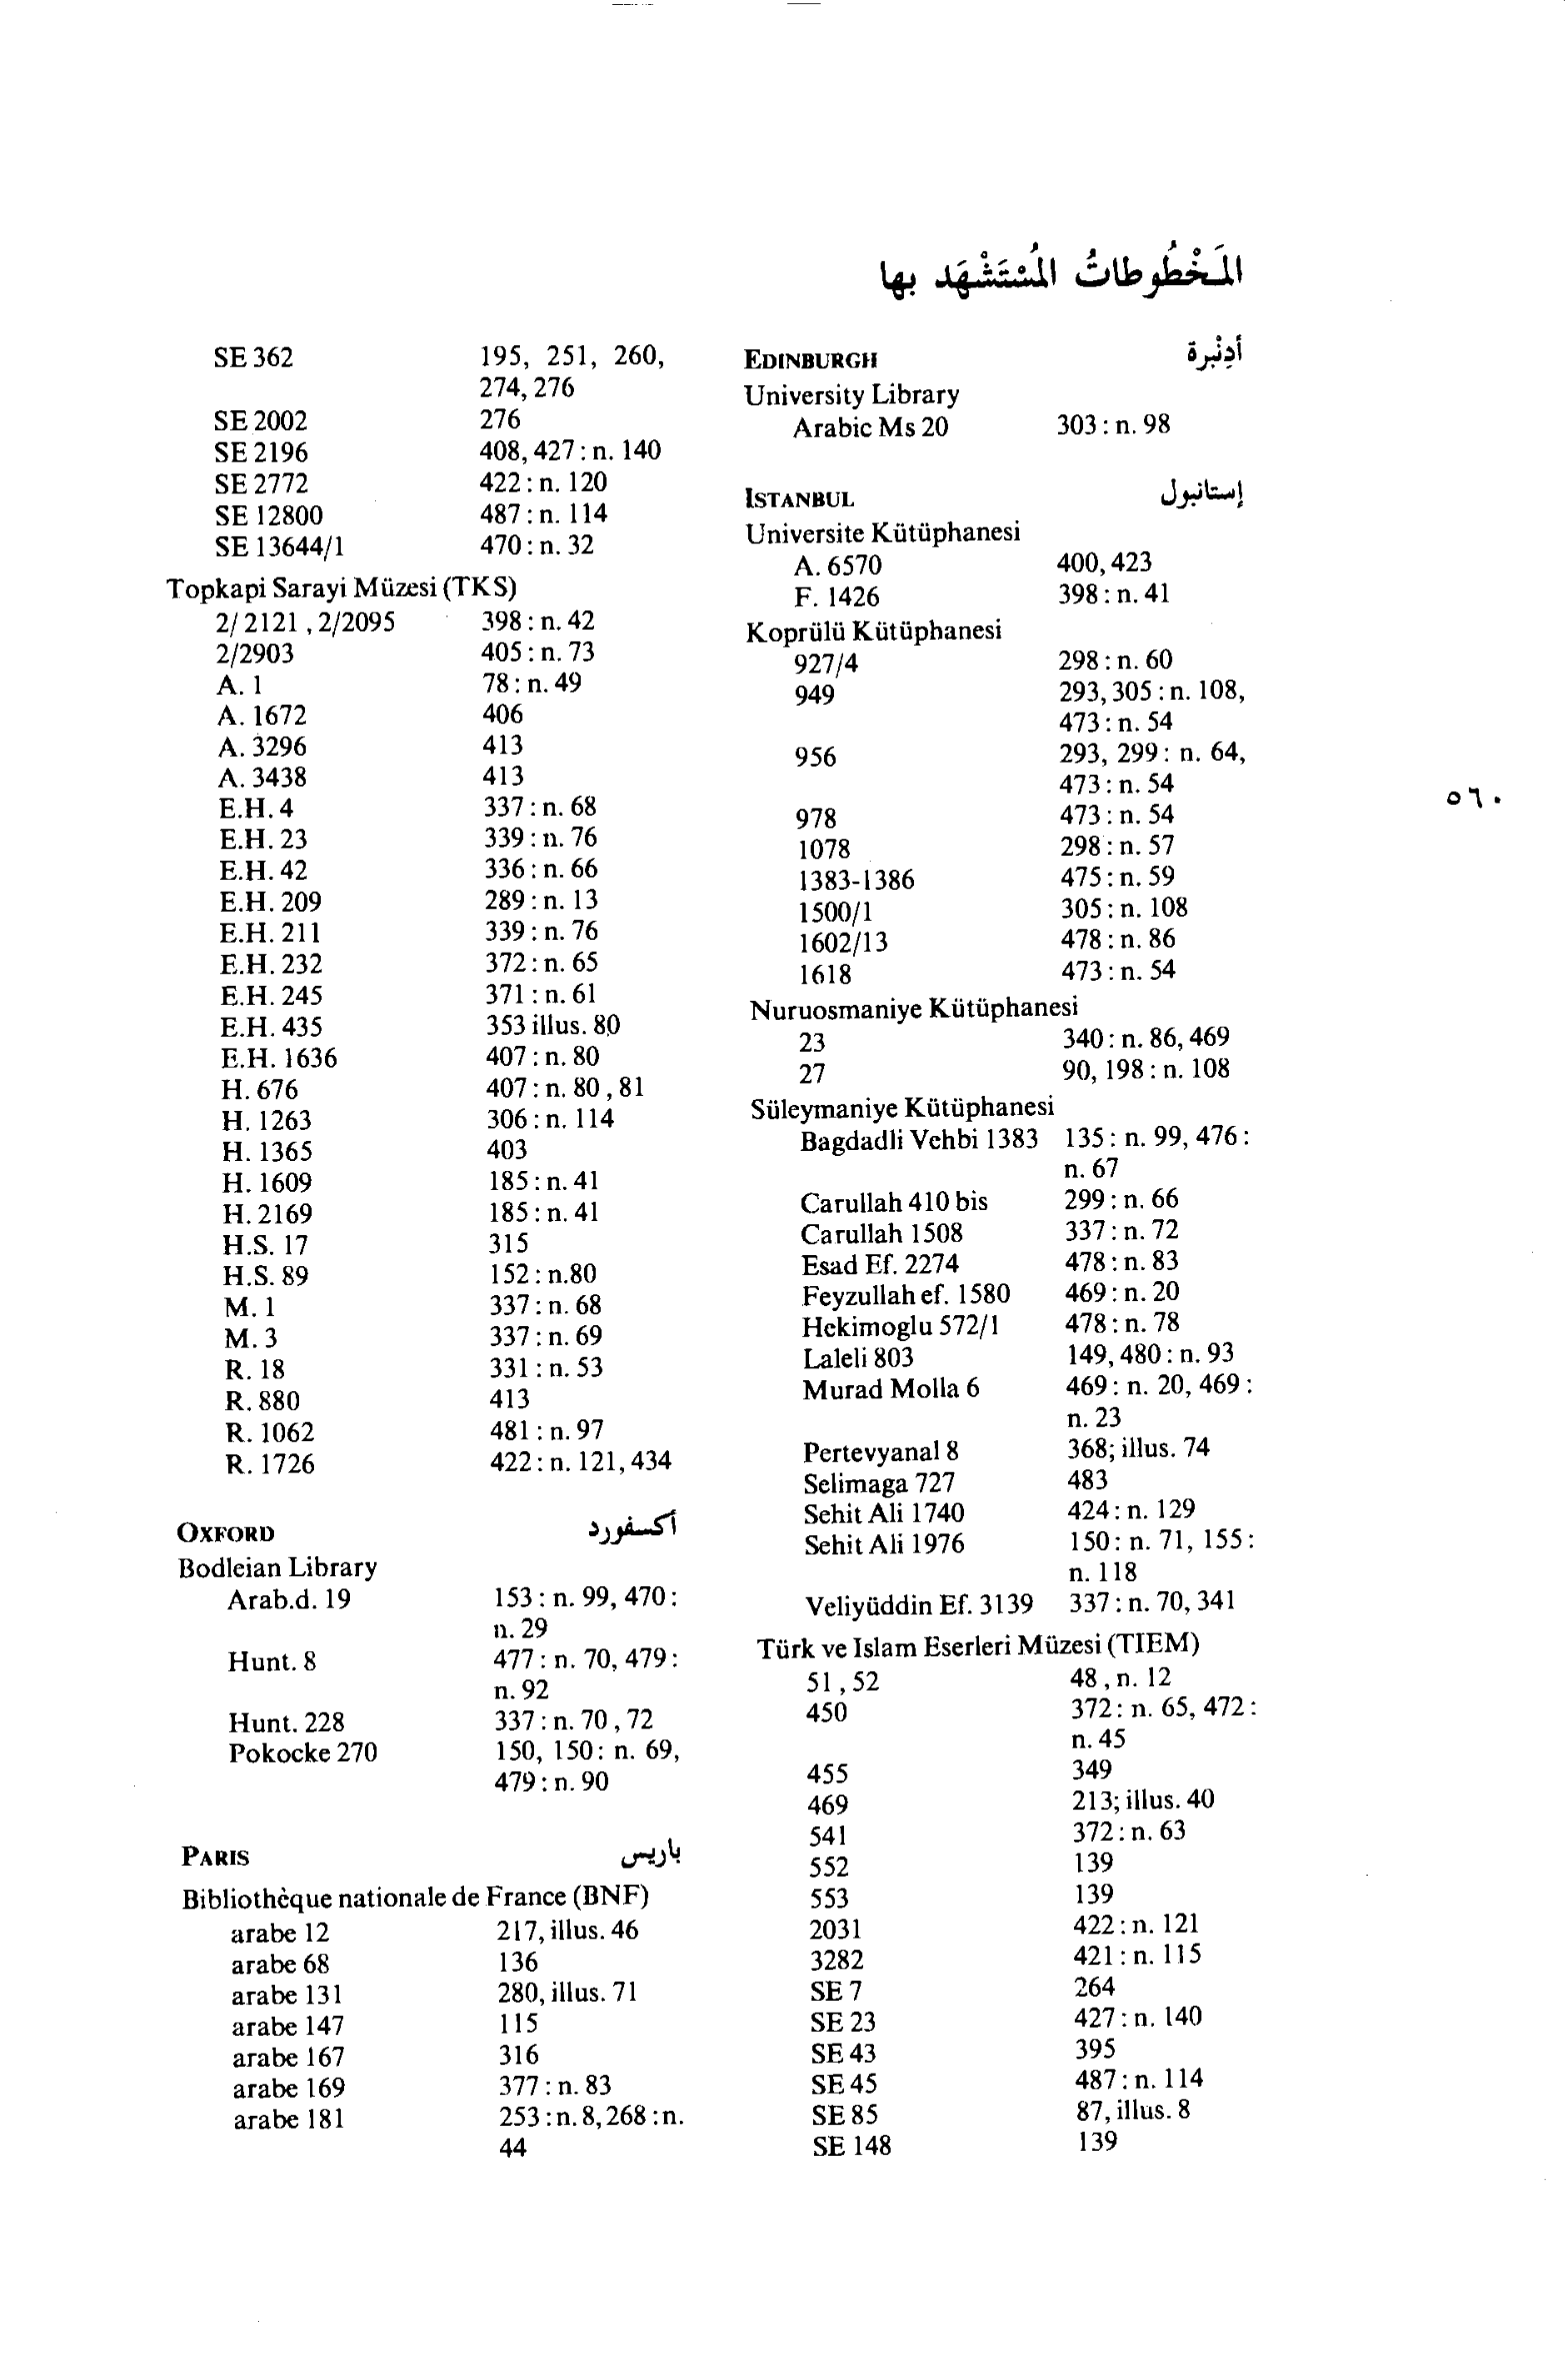 المَخْطُوطاتُ المُسْتَشْهَد بها
EDINBURGH أدِنْبرة
University Library
Arabic Ms 20 303 : n. 98
ISTANBUL إستانبول
Universite Kütüphanesi
A. 6570 400, 423
F. 1426 398 : n. 41
Koprülü Kütüphanesi
927/4 298 : n. 60
949 293, 305 : n. 108,
473 : n. 54
956 293, 299 : n. 64,
473 : n. 54
978 473 : n. 54
1078 298 : n. 57
1383-1386 475 : n. 59
1500/1 305 : n. 108
1602/13 478 : n. 86
1618 473 : n. 54
Nuruosmaniye Kütüphanesi
23 340 : n. 86, 469
27 90, 198 : n. 108
Süleymaniye Kütüphanesi
Bagdadli Vehbi 1383 135 : n. 99, 476 :
n. 67
Carullah 410 bis 299 : n. 66
Carullah 1508 337 : n. 72
Esad Ef. 2274 478 : n. 83
Feyzullah ef. 1580 469 : n. 20
Hekimoglu 572/1 478 : n. 78
Laleli 803 149, 480 : n. 93
Murad Molla 6 469 : n. 20, 469 :
n. 23
Pertevyanal 8 368; illus. 74
Selimaga 727 483
Sehit Ali 1740 424 : n. 129
Sehit Ali 1976 150 : n. 71, 155 :
n. 118
Veliyüddin Ef. 3139 337 : n. 70, 341
Türk ve Islam Eserleri Müzesi (TIEM)
51 , 52 48 , n. 12
450 372 : n. 65, 472 :
n. 45
455 349
469 213; illus. 40
541 372 : n. 63
552 139
553 139
2031 422 : n. 121
3282 421 : n. 115
SE 7 264
SE 23 427 : n. 140
SE 43 395
SE 45 487 : n. 114
SE 85 87, illus. 8
SE 148 139
SE 362 195, 251, 260,
274, 276
SE 2002 276
SE 2196 408, 427 : n. 140
SE 2772 422 : n. 120
SE 12800 487 : n. 114
SE 13644/1 470 : n. 32
Topkapi Sarayi Müzesi (TKS)
2/ 2121 , 2/2095 398 : n. 42
2/2903 405 : n. 73
A. 1 78 : n. 49
A. 1672 406
A. 3296 413
A. 3438 413
E.H. 4 337 : n. 68
E.H. 23 339 : n. 76
E.H. 42 336 : n. 66
E.H. 209 289 : n. 13
E.H. 211 339 : n. 76
E.H. 232 372 : n. 65
E.H. 245 371 : n. 61
E.H. 435 353 illus. 80
E.H. 1636 407 : n. 80
H. 676 407 : n. 80 , 81
H. 1263 306 : n. 114
H. 1365 403
H. 1609 185 : n. 41
H. 2169 185 : n. 41
H.S. 17 315
H.S. 89 152 : n.80
M. 1 337 : n. 68
M. 3 337 : n. 69
R. 18 331 : n. 53
R. 880 413
R. 1062 481 : n. 97
R. 1726 422 : n. 121, 434
OXFORD أكسفورد
Bodleian Library
Arab.d. 19 153 : n. 99, 470 :
n. 29
Hunt. 8 477 : n. 70, 479 :
n. 92
Hunt. 228 337 : n. 70 , 72
Pokocke 270 150, 150 : n. 69,
479 : n. 90
PARIS باريس
Bibliothèque nationale de France (BNF)
arabe 12 217, illus. 46
arabe 68 136
arabe 131 280, illus. 71
arabe 147 115
arabe 167 316
arabe 169 377 : n. 83
arabe 181 253 : n. 8, 268 : n.
44
٥٦٠